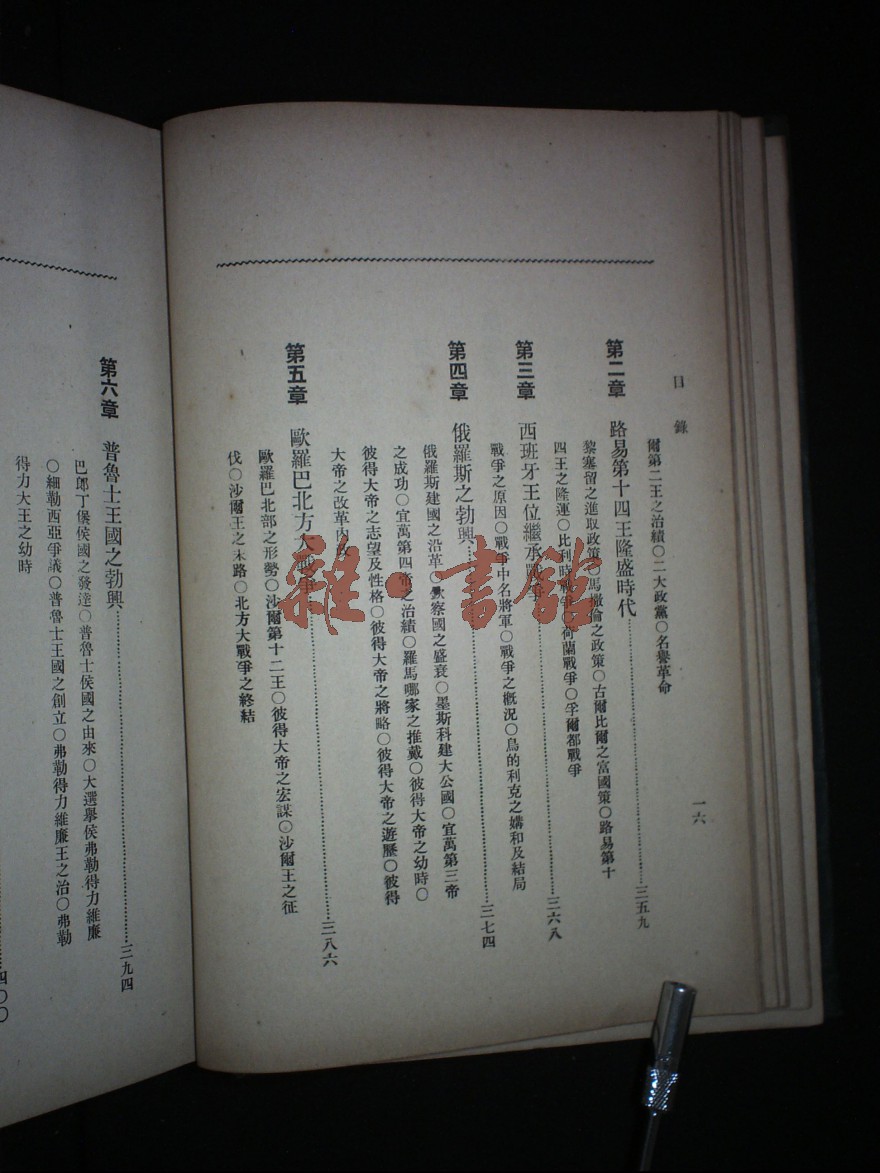 目錄
一六
爾第二王之治績〇二大政黨〇名譽革命
第二章 路易第十四王隆盛時代……三五九
黎塞留之進取政策〇馬撒倫之政策〇古爾比爾之富國策〇路易第十
四王之隆運〇比利時戰爭〇荷蘭戰爭〇孚爾都戰爭
第三章 西班牙王位繼承戰爭……三六八
戰爭之原因〇戰爭中名將軍〇戰爭之概況〇烏的利克之媾和及結局
第四章 俄羅斯之勃興……三七四
俄羅斯建國之沿革〇欽察國之盛衰〇墨斯科建大公國〇宜萬第三帝
之成功〇宜萬第四帝之治績〇羅馬哪家之推戴〇彼得大帝之幼時〇
彼得大帝之志望及性格〇彼得大帝之將略〇彼得大帝之遊歷〇彼得
大帝之改革內政
第五章 歐羅巴北方大戰爭……三八六
歐羅巴北部之形勢〇沙爾第十二王〇彼得大帝之宏謀〇沙爾王之征
伐〇沙爾王之末路〇北方大戰爭之終結
第六章 普魯士王國之勃興……三九四
巴郎丁堡侯國之發達〇普魯士侯國之由來〇大選舉侯弗勒得力維廉
〇細勒西亞爭議〇普魯士王國之創立〇弗勒得力維廉王之治〇弗勒
得力大王之幼時
四〇〇
雜·書館